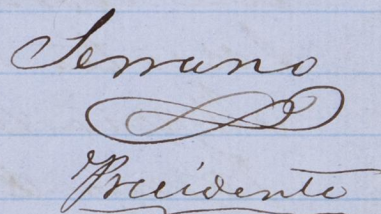 Serrano
Presidente